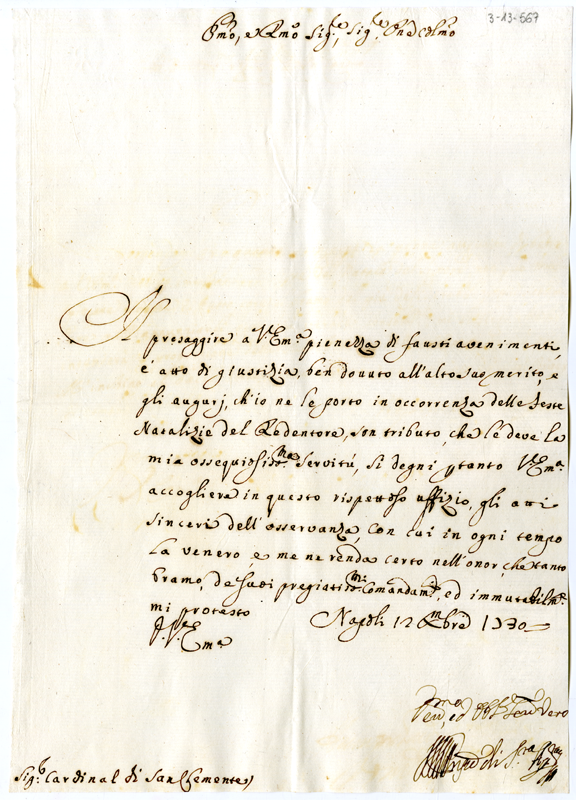 3-13-567
Em̃o, e Rm̃o Sig.re, Sig.re Pñe Colm̃o
Il
presaggire a V. Em.a pienezza di fausti avenimenti,
è atto di giustizia, ben dovuto all'alto suo merito, e
gli augurj, ch'io ne le porto in occorrenza delle feste
Natalizie del Redentore, son tributo, che le deve la
mia ossequiosiss.ma servitú, si degni ptanto V. Em.a
accogliera in questo rispettoso uffizio, gli atti
sinceri dell'osservanza, con cui in ogni tempo
la venero, e me ne renda certo nell'onor, che tanto
bramo, de suoi pregiatiss.mi Comandam.ti, ed immutabilm.e
mi protesto
Napoli 12 Xmbre 1730
D. V.ra Em.a
ed Obb.
Sig.r Cardinal di San Clemente